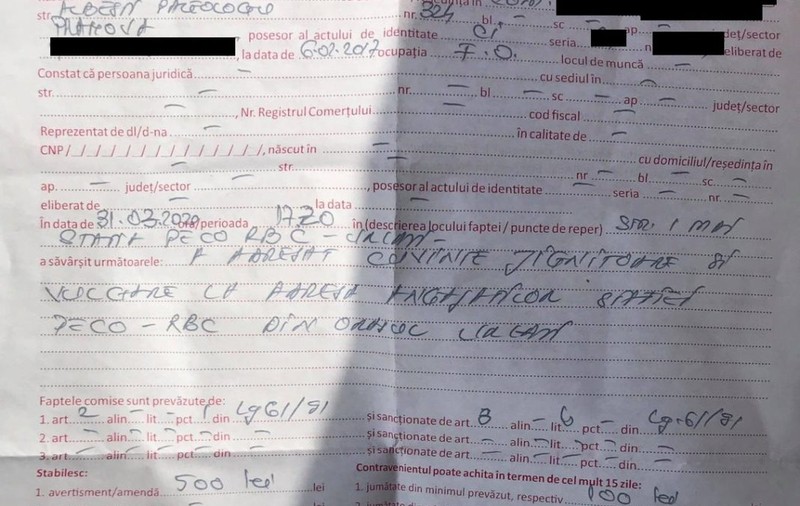 str. ALBEȘTI PALEOLOGU nr. 324 bl. – sc. – ap. – județ/sector
PRAHOVA posesor al actului de identitate CI seria n eliberat de
, la data de 6.02.2017 ocupația F.O. locul de muncă –
Constat că persoana juridică – cu sediul în –
str. – nr. – bl. – sc. – ap. – județ/sector
– , Nr. Registrul Comerțului – cod fiscal –
Reprezentat de dl/d-na – în calitate de –
CNP/_/_/_/_/_/_/_/_/_/_/_/_/_/, născut în – cu domiciliul/reședința în
– str. – nr. – bl. – sc. –
ap. – județ/sector – , posesor al actului de identitate – seria – nr. –
eliberat de – la data –
În data de 31.03.2020 ora/perioada 1720 în (descrierea locului faptei / puncte de reper) STR. 1 MAI
PECO RBC – URLAȚI –
a săvârșit următoarele: A ADRESAT CUVINTE JIGNITOARE ȘI
VULGARE LA ADRESA ANGAJAȚILOR STAȚIEI
PECO – RBC DIN ORAȘUL URLAȚI
Faptele comise sunt prevăzute de:
1. art. 2 alin. – lit. – pct. 1 din Lg 61/91 și sancționate de art. 3 alin. – lit. b pct. – din Lg. 61/91
2. art. – alin. – lit. – pct. – din – și sancționate de art. – alin. – lit. – pct. – din –
3. art. – alin. – lit. – pct. – din – și sancționate de art. – alin. – lit. – pct. – din –
Stabilesc: Contravenientul poate achita în termen de cel mult 15 zile:
1. avertisment/amendă 500 lei lei 1. jumătate din minimul prevăzut, respectiv 100 lei